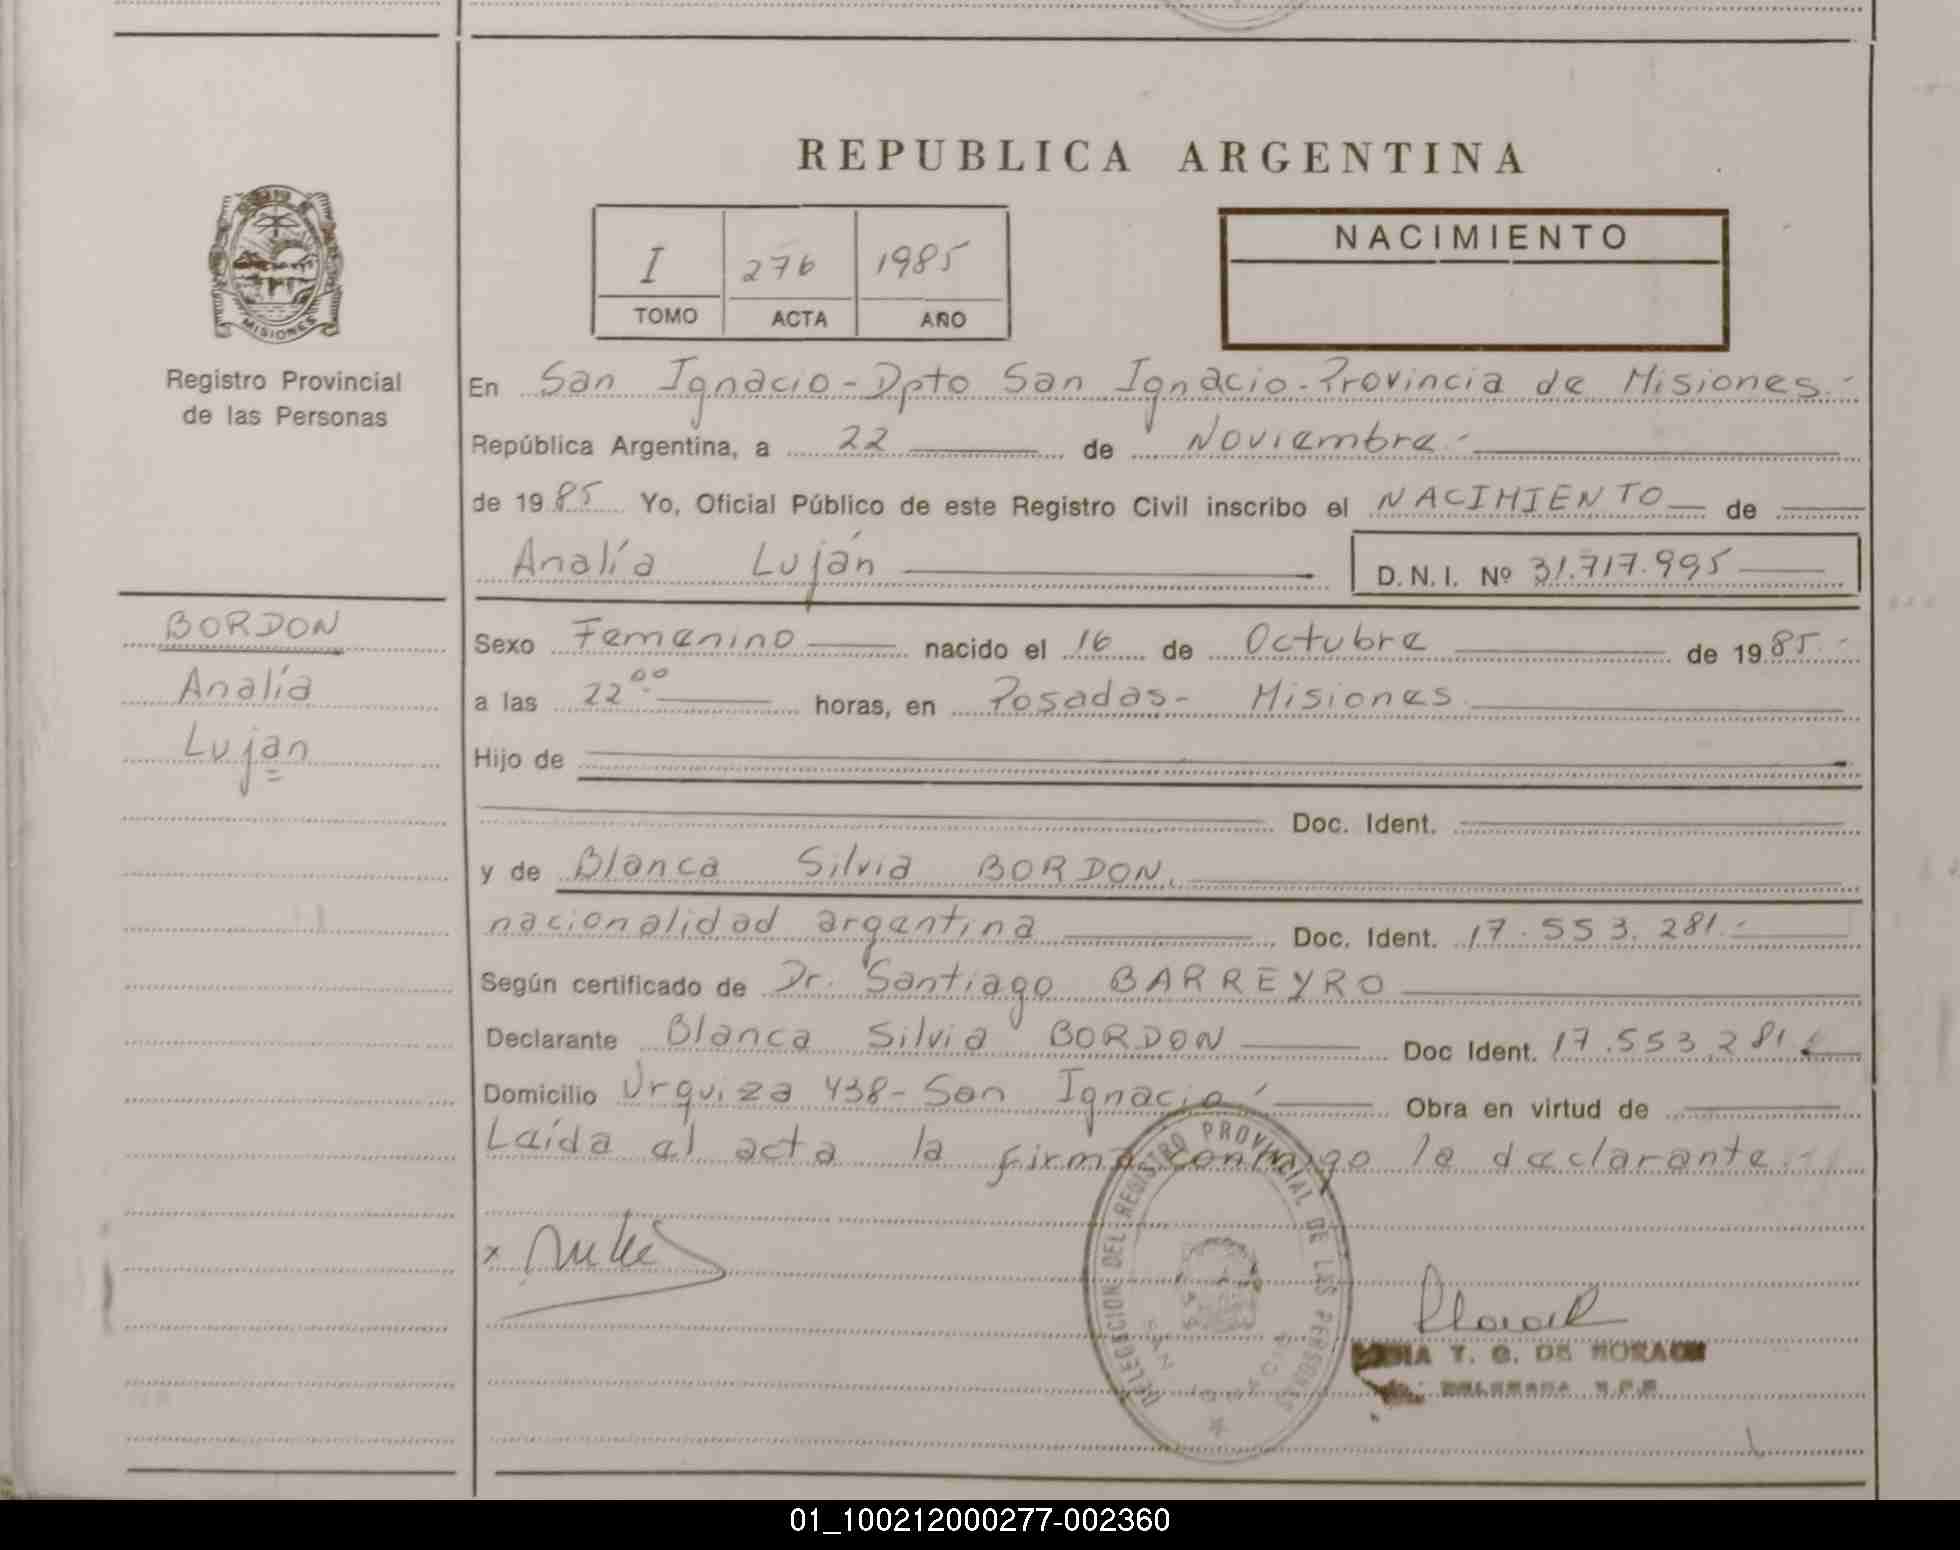 REPUBLICA ARGENTINA
MISIONES
Registro Provincial
de las Personas
I 276 1985
TOMO ACTA AÑO
NACIMIENTO
En San Ignacio - Dpto San Ignacio - Provincia de Misiones.-
República Argentina, a 22 de Noviembre.-
de 1985 Yo, Oficial Público de este Registro Civil inscribo el NACIMIENTO de
Analía Luján D.N.I. Nº 31.717.995
BORDON
Analía
Lujan
Sexo Femenino nacido el 16 de Octubre de 1985.-
a las 22 00 horas, en Posadas - Misiones
Hijo de
Doc. Ident.
y de Blanca Silvia BORDON.
nacionalidad argentina Doc. Ident. 17.553.281.-
Según certificado de Dr. Santiago BARREYRO
Declarante Blanca Silvia BORDON Doc Ident. 17.553.281
Domicilio Urquiza 438 - San Ignacio Obra en virtud de
Leída el acta la firma conmigo la declarante.-
x
DELEGACION DEL REGISTRO PROVINCIAL DE LAS PERSONAS
SAN IGNACIO
T. G. DE
01_100212000277-002360